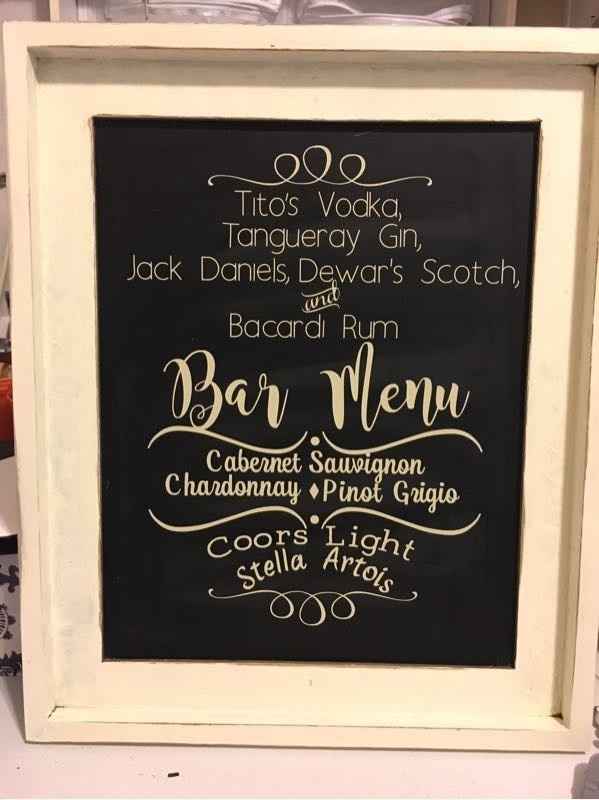 Tito's Vodka,
Tangueray Gin,
Jack Daniels, Dewar's Scotch,
and
Bacardi Rum
Bar Menu
Cabernet Sauvignon
Chardonnay ♦ Pinot Grigio
Coors Light
Stella Artois